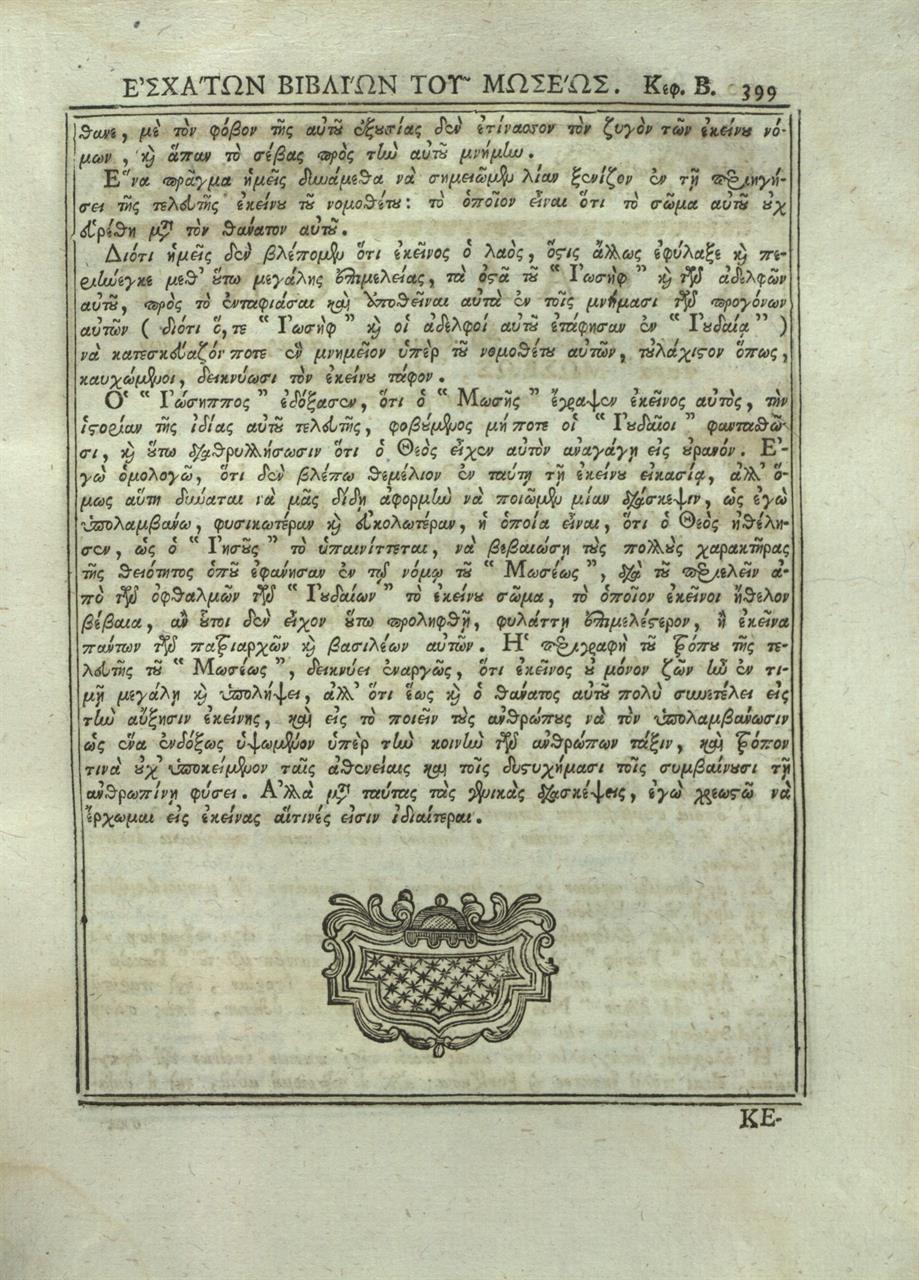 ΕʼΣΧΑʹΤΩΝ ΒΙΒΛΙʹΩΝ ΤΟΥ͂ ΜΩΣΕʹΩΣ. Κεφ. Β. 399
θανε, μὲ τὸν φόβον τῆς αὐτοῦ ἐξουσίας δὲν ἐτίναξον τὸν ζυγὸν τῶν ἐκείνου νό-
μων, καὶ ἅπαν τὸ σέβας πρὸς τὴν αὐτοῦ μνήμην.
Ἕνα πρᾶγμα ἡμεῖς δυνάμεθα νὰ σημειῶμεν λίαν ξενίζον ἐν τῇ περιηγή-
σει τῆς τελευτῆς ἐκείνου τοῦ νομοθέτου: τὸ ὁποῖον εἶναι ὅτι τὸ σῶμα αὐτοῦ οὐχ
εὑρέθη μετὰ τὸν θάνατον αὐτοῦ.
Διότι ἡμεῖς δὲν βλέπομεν ὅτι ἐκεῖνος ὁ λαὸς, ὅστις ἄλλως ἐφύλαξε καὶ πε-
ριήνεγκε μεθ' οὕτω μεγάλης ἐπιμελείας, τὰ ὀστᾶ τοῦ “ Ἰωσὴφ ” καὶ τῶν ἀδελφῶν
αὐτοῦ, πρὸς τὸ ἐνταφιάσαι καὶ ἀποθεῖναι αὐτὰ ἐν τοῖς μνήμασι τῶν προγόνων
αὐτῶν ( διότι ὅ,τε “ Ἰωσὴφ ” καὶ οἱ ἀδελφοί αὐτοῦ ἐτάφησαν ἐν “ Ἰουδαίᾳ ” )
νὰ κατεσκεύαζόν ποτε ἓν μνημεῖον ὑπὲρ τοῦ νομοθέτου αὐτῶν, τοὐλάχιστον ὅπως,
καυχώμενοι, δεικνύωσι τὸν ἐκείνου τάφον.
Ὁ “ Ἰώσηππος ” ἐδόξασεν, ὅτι ὁ “ Μωσῆς ” ἔγραψεν ἐκεῖνος αὐτὸς, τὴν
ἱστορίαν τῆς ἰδίας αὐτοῦ τελευτῆς, φοβούμενος μή ποτε οἱ “ Ἰουδαῖοι ” φαντασθῶ-
σι, καὶ οὕτω διαθρυλλήσωσιν ὅτι ὁ Θεὸς εἶχεν αὐτὸν ἀναγάγῃ εἰς οὐρανόν. Ἐ-
γὼ ὁμολογῶ, ὅτι δὲν βλέπω θεμέλιον ἐν ταύτῃ τῇ ἐκείνου εἰκασίᾳ, ἀλλ' ὅ-
μως αὕτη δύναται νὰ μᾶς δίδῃ ἀφορμὴν νὰ ποιῶμεν μίαν διάσκεψιν, ὡς ἐγὼ
ὑπολαμβάνω, φυσικωτέραν καὶ εὐκολωτέραν, ἡ ὁποία εἶναι, ὅτι ὁ Θεὸς ἠθέλη-
σεν, ὡς ὁ “ Ἰησοῦς ” τὸ ὑπαινίττεται, νὰ βεβαιώσῃ τοὺς πολλοὺς χαρακτῆρας
τῆς θειότητος ὁποῦ ἐφάνησαν ἐν τῷ νόμῳ τοῦ “ Μωσέως ”, διὰ τοῦ περιελεῖν ἀ-
πὸ τῶν ὀφθαλμῶν τῶν “ Ἰουδαίων ” τὸ ἐκείνου σῶμα, τὸ ὁποῖον ἐκεῖνοι ἤθελον
βέβαια, ἂν οὗτοι δὲν εἶχον οὕτω προληφθῇ, φυλάττῃ ἐπιμελέστερον, ἢ ἐκεῖνα
πάντων τῶν πατριαρχῶν καὶ βασιλέων αὐτῶν. Ἡ περιγραφὴ τοῦ τρόπου τῆς τε-
λευτῆς τοῦ “ Μωσέως ”, δεικνύει ἐναργῶς, ὅτι ἐκεῖνος οὐ μόνον ζῶν ἦν ἐν τι-
μῇ μεγάλῃ καὶ ὑπολήψει, ἀλλ' ὅτι ἕως καὶ ὁ θάνατος αὐτοῦ πολὺ συνετέλει εἰς
τὴν αὔξησιν ἐκείνης, καὶ εἰς τὸ ποιεῖν τοὺς ἀνθρώπους νὰ τὸν ὑπολαμβάνωσιν
ὡς ἕνα ἐνδόξως ὑψωμένον ὑπὲρ τὴν κοινὴν τῶν ἀνθρώπων τάξιν, καὶ τρόπον
τινὰ οὐχ' ὑποκείμενον ταῖς ἀσθενείαις καὶ τοῖς δυστυχήμασι τοῖς συμβαίνουσι τῇ
ἀνθρωπίνῃ φύσει. Ἀλλὰ μετὰ ταύτας τὰς γενικὰς διασκέψεις, ἐγὼ χρεωστῶ νὰ
ἔρχωμαι εἰς ἐκείνας αἵτινές εἰσιν ἰδιαίτεραι.
ΚΕ-